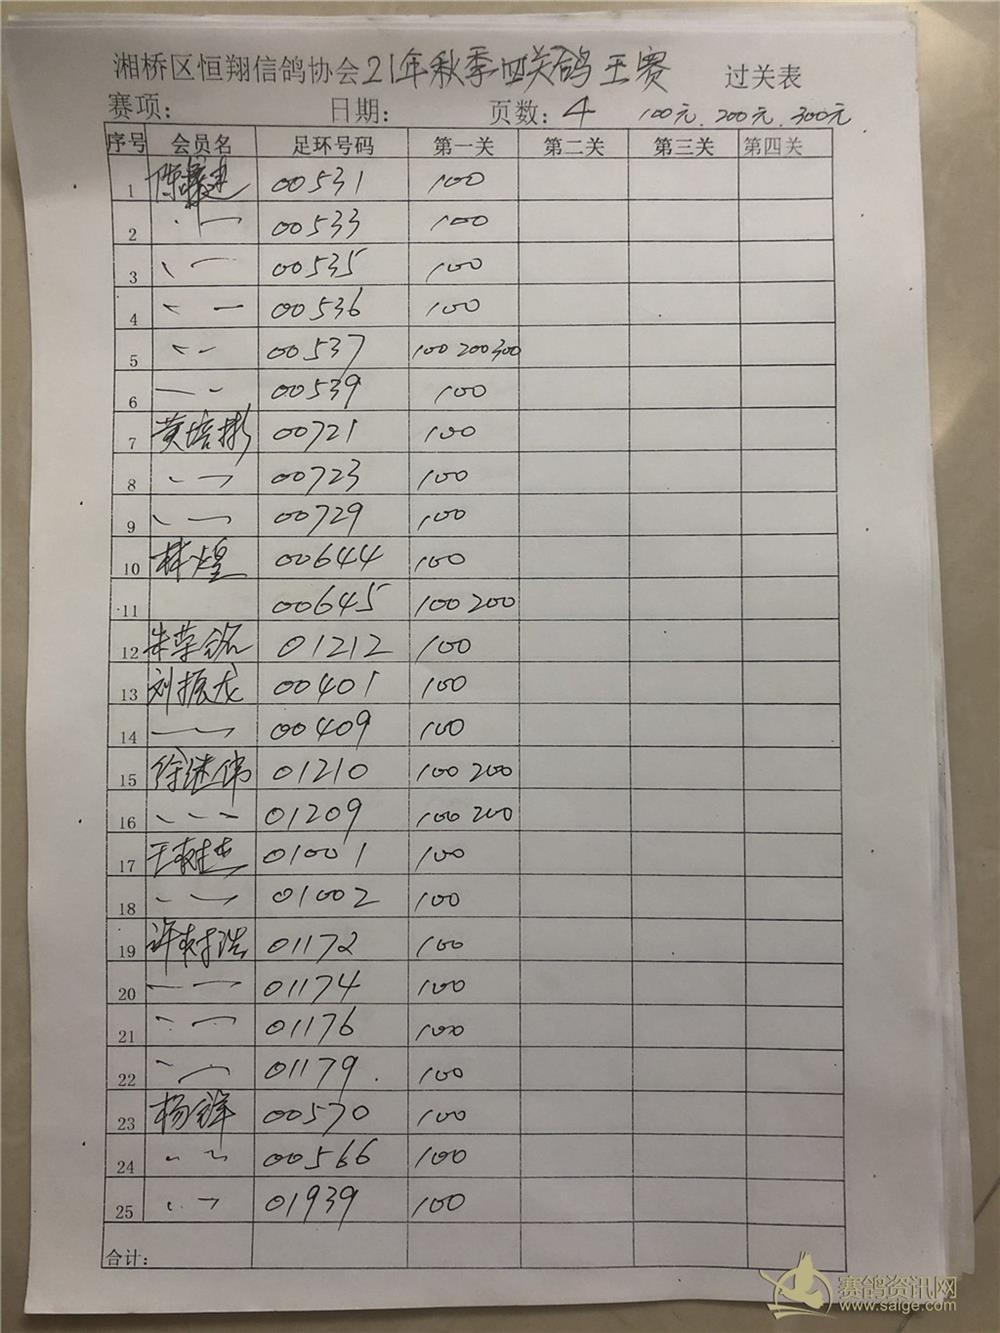 湘桥区恒翔信鸽协会21年秋季四关鸽王赛 过关表
赛项： 日期： 页数：4 100元.200元.300元
序号 会员名 足环号码 第一关 第二关 第三关 第四关
1 陈 建 00531 100
2 00533 100
3 00535 100
4 00536 100
5 00537 100 200 300
6 00539 100
7 黄培彬 00721 100
8 00723 100
9 00729 100
10 林煌 00644 100
11 00645 100 200
12 朱荣铭 01212 100
13 刘振龙 00401 100
14 00409 100
15 徐继伟 01210 100 200
16 01209 100 200
17 王树杰 01001 100
18 01002 100
19 许树浩 01172 100
20 01174 100
21 01176 100
22 01179. 100
23 杨锋 00570 100
24 00566 100
25 01939 100
合计：
赛鸽资讯网
www.saige.com